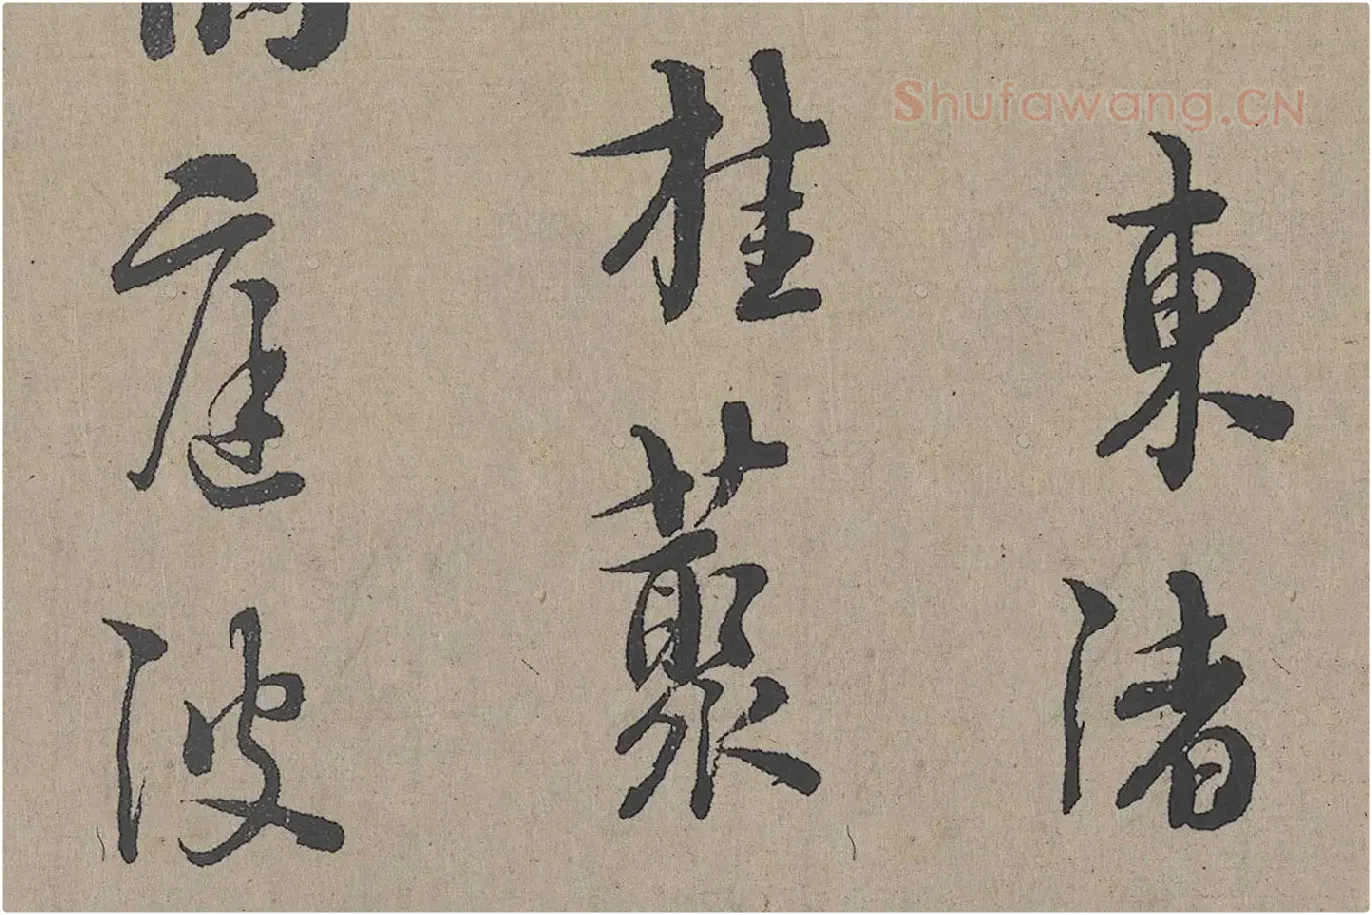 Shufawang.CN
東渚
桂藂
庭波